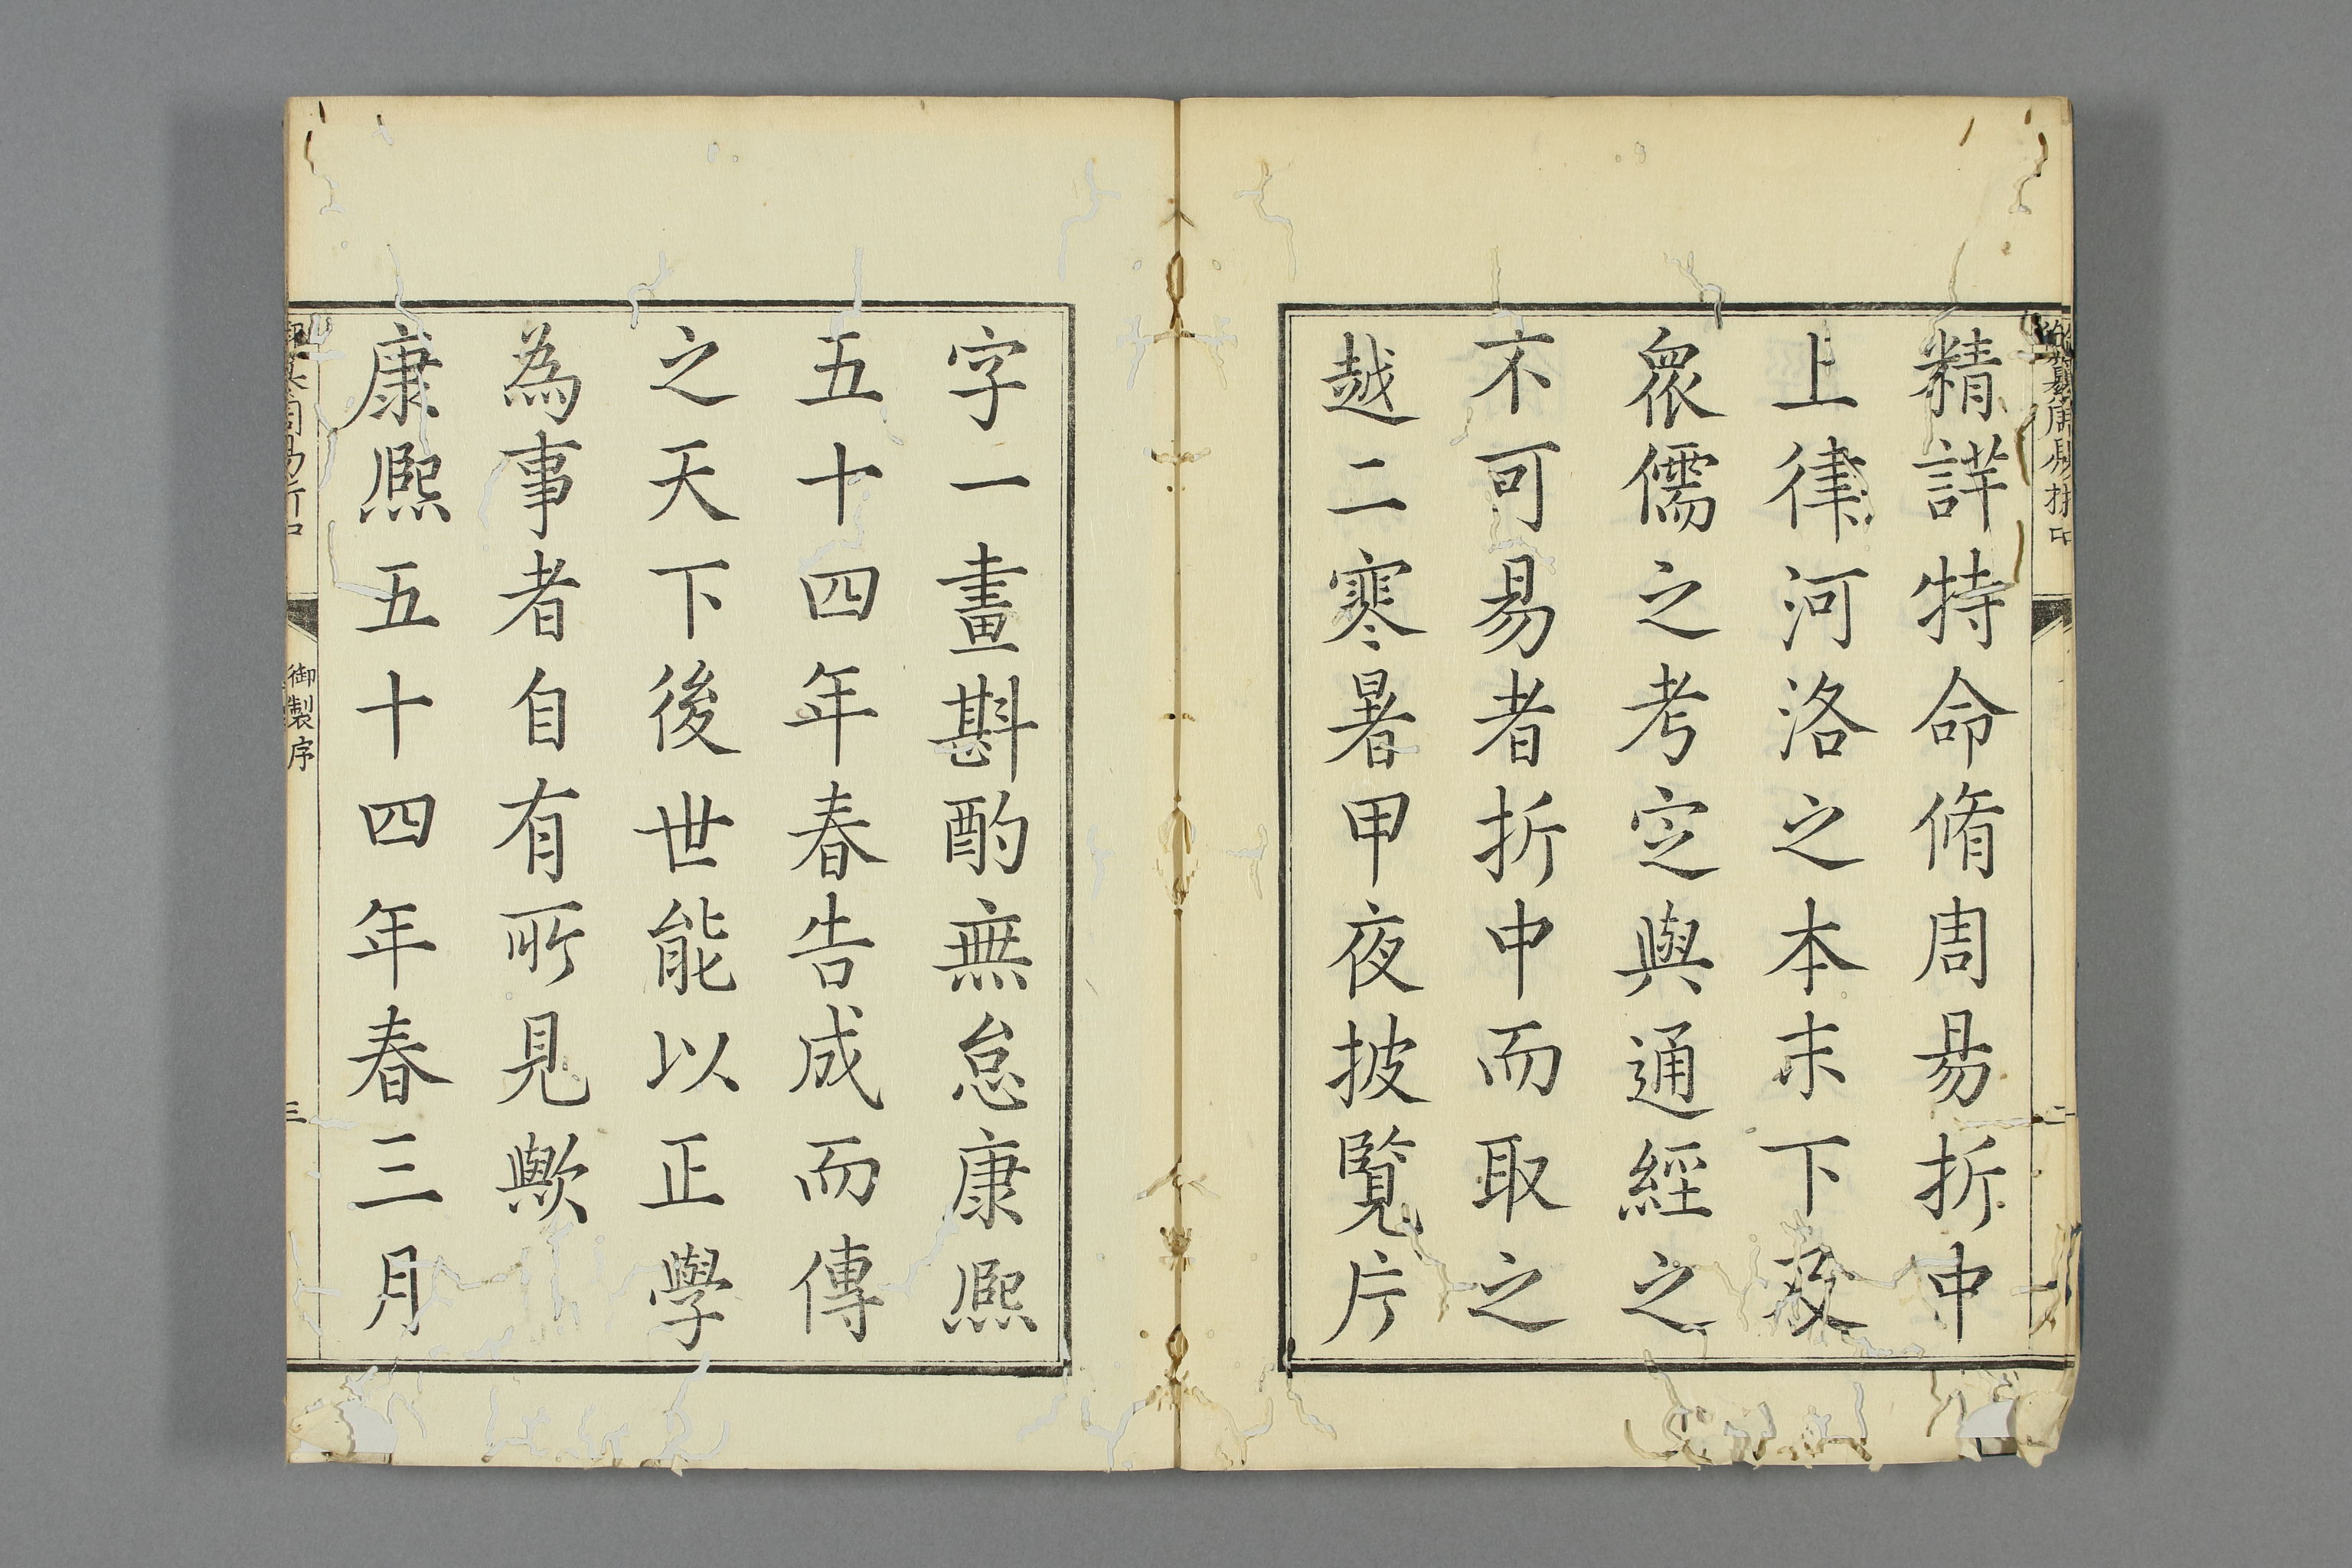 精詳特命脩周易折中
上律河洛之本末下及
衆儒之考定與通經之
不可易者折中而取之
越二寒暑甲夜披覽片
字一畫斟酌無怠康熙
五十四年春告成而傳
之天下後世能以正學
為事者自有所見歟
康熙五十四年春三月
御製序
三